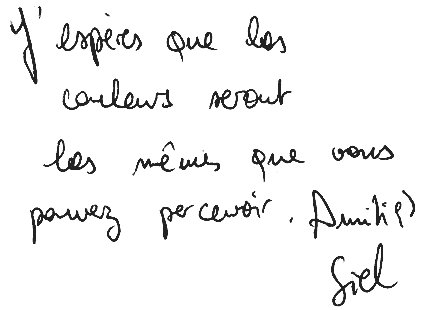 J'espères que les
couleurs seront
les mêmes que vous
pouvez percevoir. Amitié)
Giel